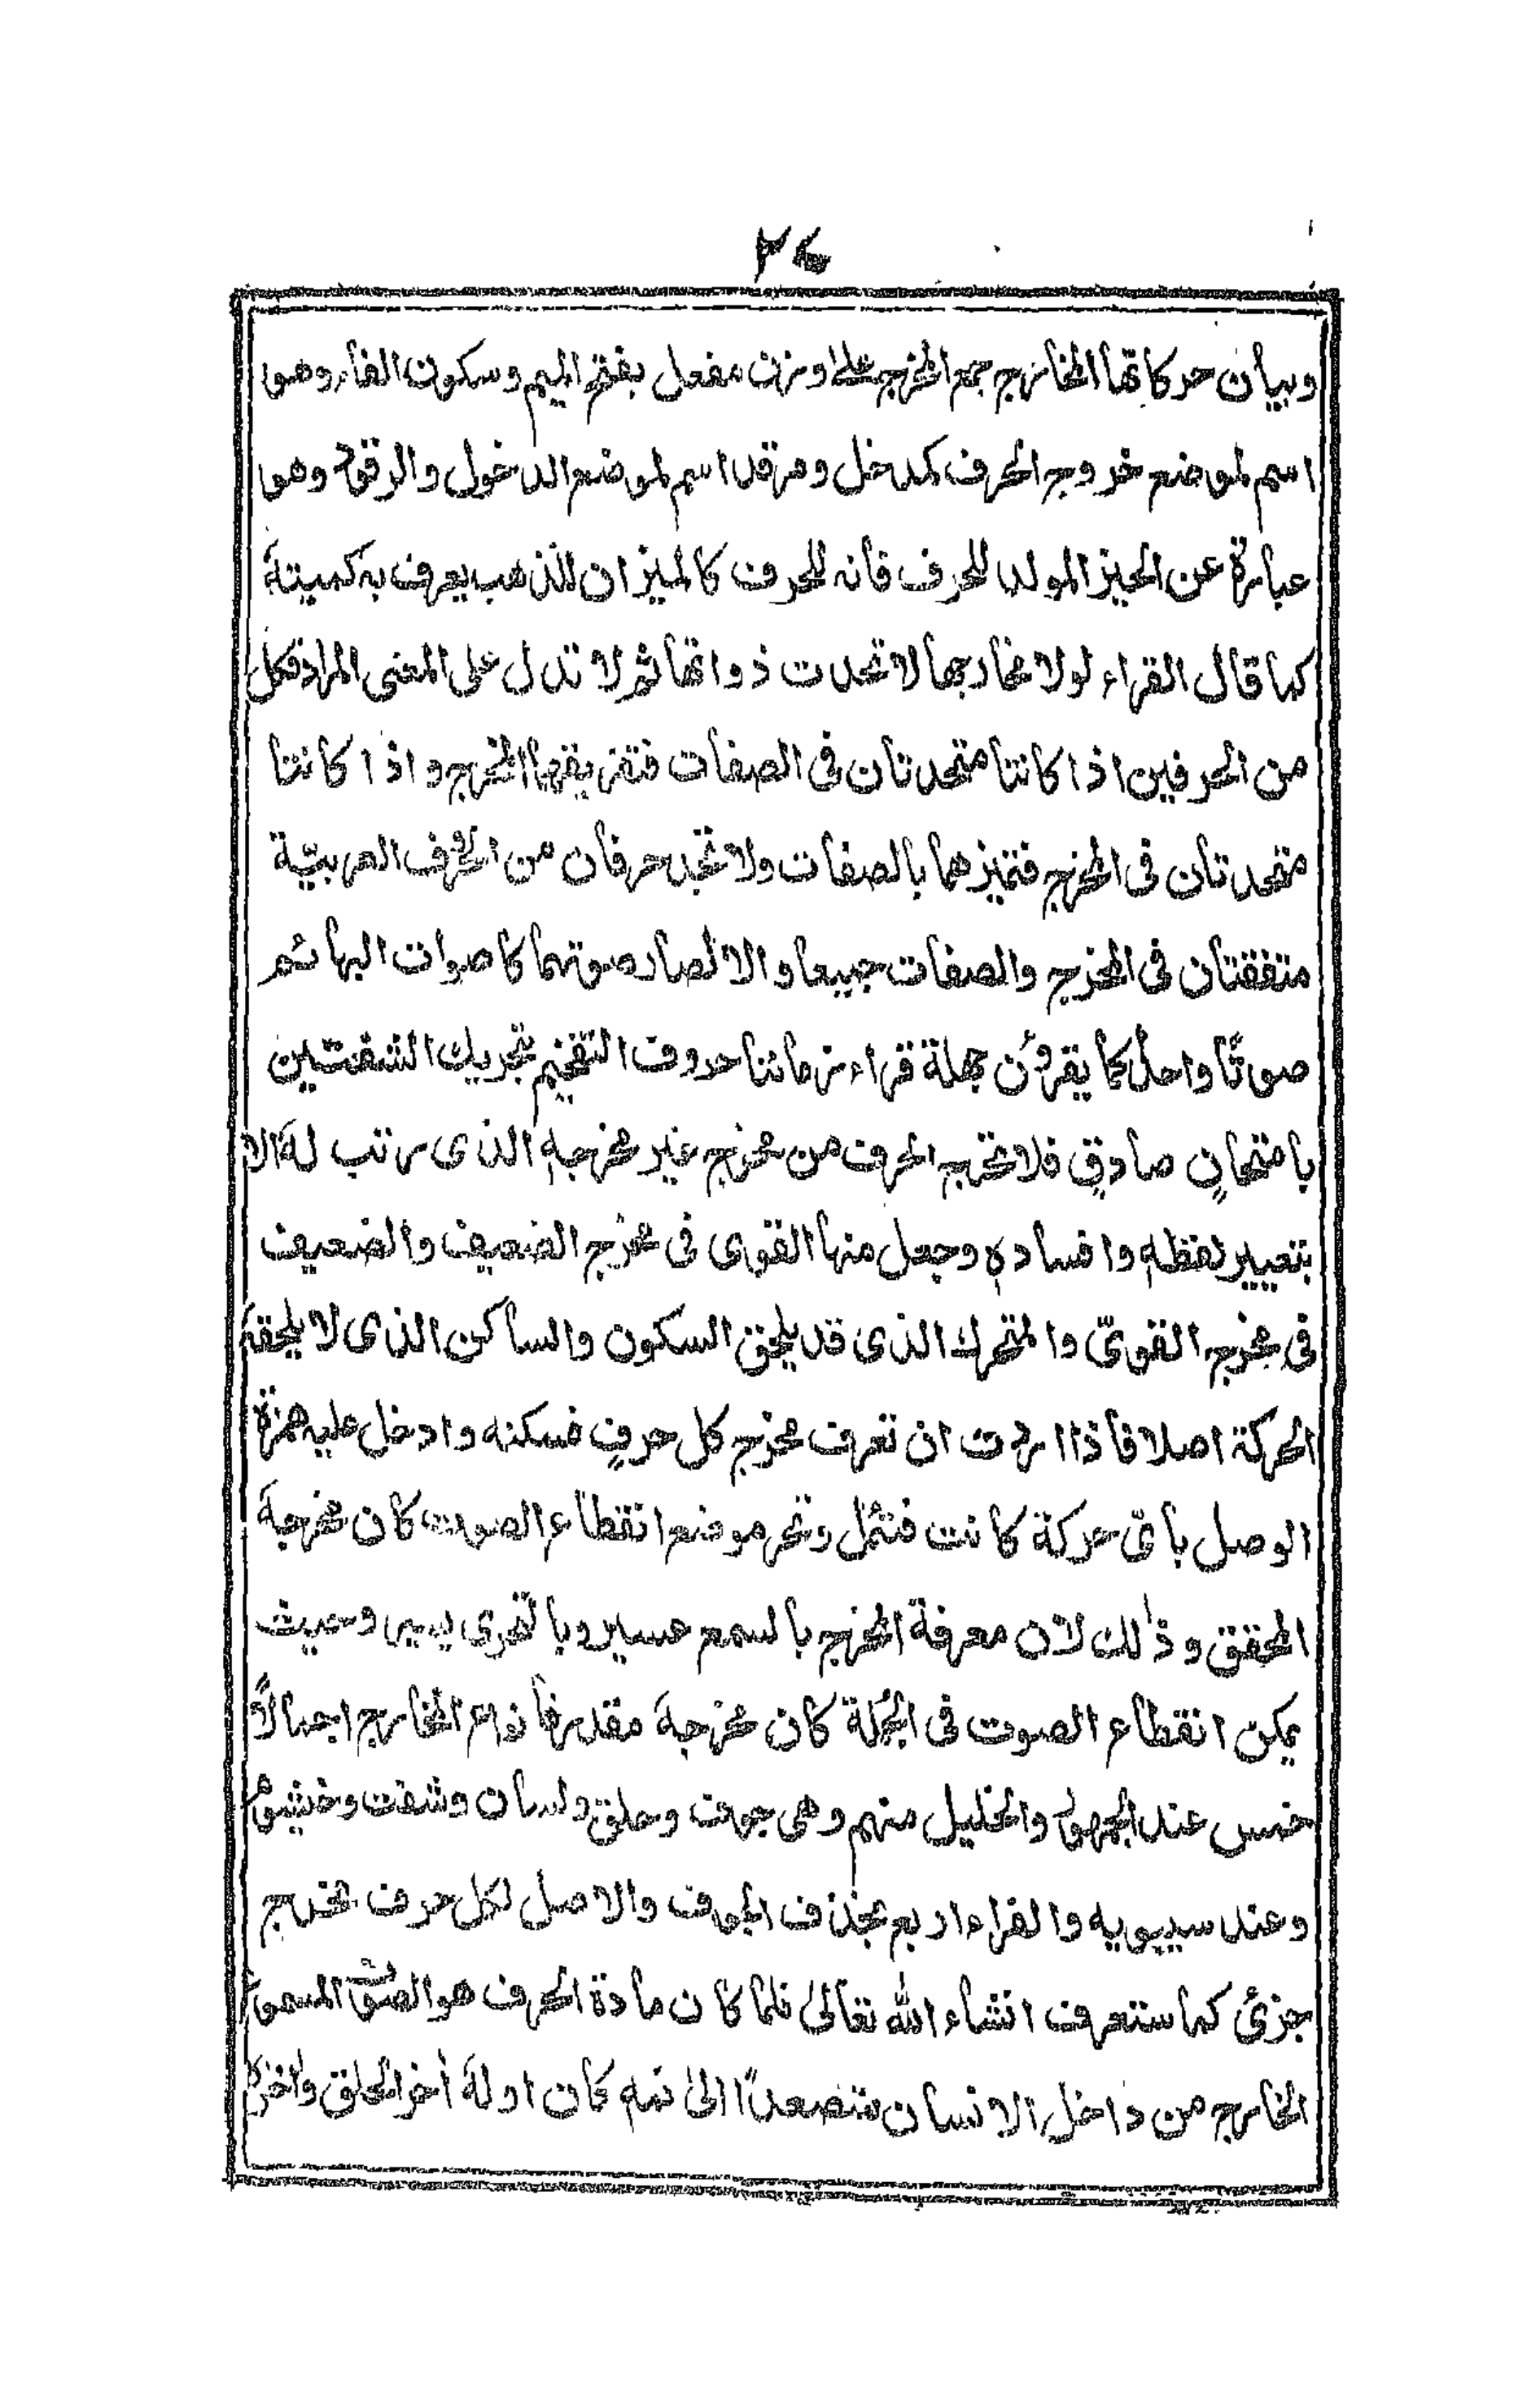 ٢٤
وبيان حركاتها المخارج جمع المخرج على وزن مفعل بفتح الميم وسكون الفاء وهو
اسم لموضع خروج الحرف كمدخل ومرقد اسم لموضع الدخول والرقود وهو
عبارة عن الحيز المولد للحرف فانه للحرف كالميزان للذهب يعرف به كميتهٗ
كما قال القراء لولا مخارجها لاتحدت ذواتها ثم لا تدل على المعنى المراد فكل
من الحرفين اذا كانتا متحدتان فى الصفات فتفريقهما المخرج واذا كانتا
متحدتان فى المخرج فتميزهما بالصفات ولا تجد حرفان من الحروف العربيّة
متفقتان فى المخرج والصفات جميعا والا لصار صوتهما كاصوات البهائم
صوتًا واحدًا كما يقرؤن جملة قراء زماننا حروف التفخيم بتحريك الشفتين
بامتحانٍ صادقٍ فلا تخرج الحرف من مخرج غير مخرجهِ الذى رتب لهٗ الا
بتغيير لفظهِ وافسادهٖ وجعل منها القوى فى مخرج الضعيف والضعيف
فى مخرج القوىّ والمتحرك الذى قد يلحق السكون والساكن الذى لا يلحقهٗ
الحركة اصلا فاذا اردت ان تعرف مخرج كل حرفٍ فسكنه وادخل عليه همزة
الوصل باىّ حركة كانت فتمل وتحر موضع انقطاع الصوت كان مخرجهٗ
المحقق وذٰلك لان معرفة المخرج بالسمع عسير وبالتحرى يسير وحيث
يمكن انقطاع الصوت فى الجُملة كان مخرجهٗ مقدر فانواع المخارج اجمالاً
خمس عند الجمهور والخليل منهم وهى جوف وحلق ولسان وشفت وخيشوم
وعند سيبويه والفراء اربع بحذف الجوف والاصل لكل حرف مخرج
جزئ كما ستعرف انشاء الله تعالىٰ فلما كان مادة الحرف هو الصوت المسموع
الخارج من داخل الانسان متصعدًا الىٰ فمهٖ كان اولهٗ اٰخر الحلق واٰخرهٗ